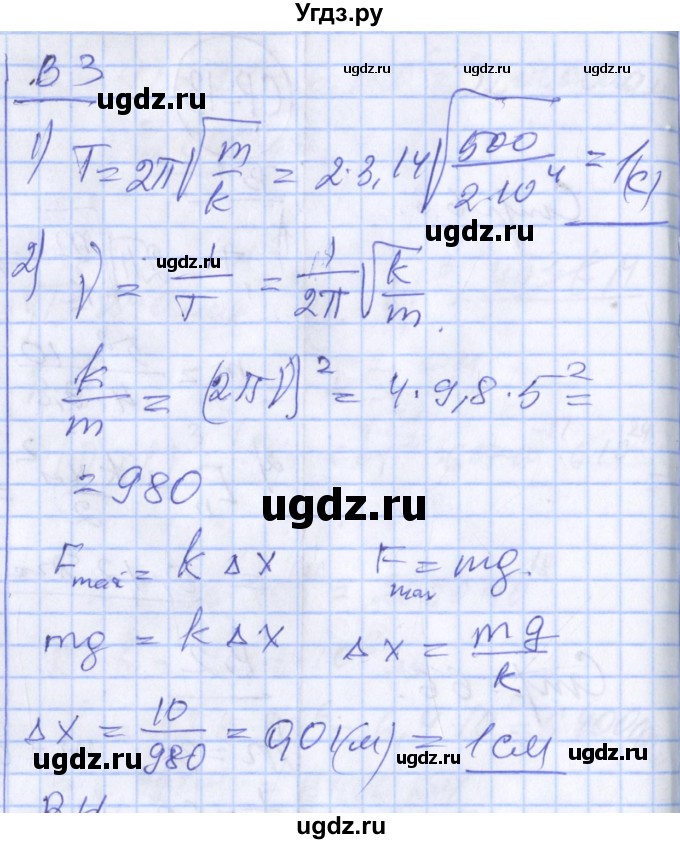 Угдз.ру
В 3
ugdz.ru
ugdz.ru
ugdz.ru
1) T = 2π√(m/k) = 2·3,14 √(500/2·10⁴) = 1(с)
ugdz.ru
ugdz.ru
2) ν = 1/T = 1/2π √(k/m).
k/m = (2πν)² = 4·9,8·5² =
= 980
ugdz.ru
F max = k Δx F max = mg.
mg = k Δx Δx = mg/k
Δx = 10/980 = 0,01(м) = 1 см
ugdz.ru
ugdz.ru
ugdz.ru
В 4
ugdz.ru